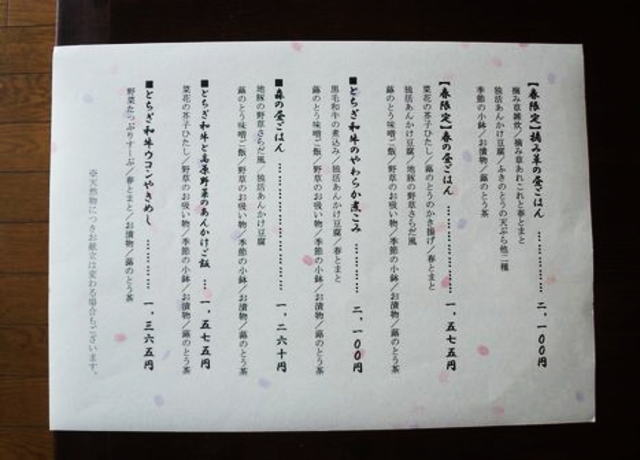 【春限定】摘み草の昼ごはん ………… 二、一〇〇円
摘み草雑炊／摘み草あれこれと春とまと
独活あんかけ豆腐／ふきのとうの天ぷら他二種
季節の小鉢／お漬物／蕗のとう茶
【春限定】春の昼ごはん ………… 一、五七五円
菜花の芥子ひたし／蕗のとうのかき揚げ／春とまと
独活あんかけ豆腐／地豚の野草さらだ風
蕗のとう味噌ご飯／野草のお吸い物／季節の小鉢／お漬物／蕗のとう茶
■とちぎ和牛のやわらか煮こみ ………… 二、一〇〇円
黒毛和牛の煮込み／独活あんかけ豆腐／春とまと
蕗のとう味噌ご飯／野草のお吸い物／季節の小鉢／お漬物／蕗のとう茶
■森の昼ごはん ………… 一、二六十円
地豚の野草さらだ風　独活あんかけ豆腐
蕗のとう味噌ご飯／野草のお吸い物／季節の小鉢／お漬物／蕗のとう茶
■とちぎ和牛と高原野菜のあんかけご飯 … 一、五七五円
菜花の芥子ひたし／野草のお吸い物／季節の小鉢／お漬物／蕗のとう茶
■とちぎ和牛ウコンやきめし ………… 一、三六五円
野菜たっぷりすーぷ／春とまと／お漬物／蕗のとう茶
※天然物につきお献立は変わる場合もございます。